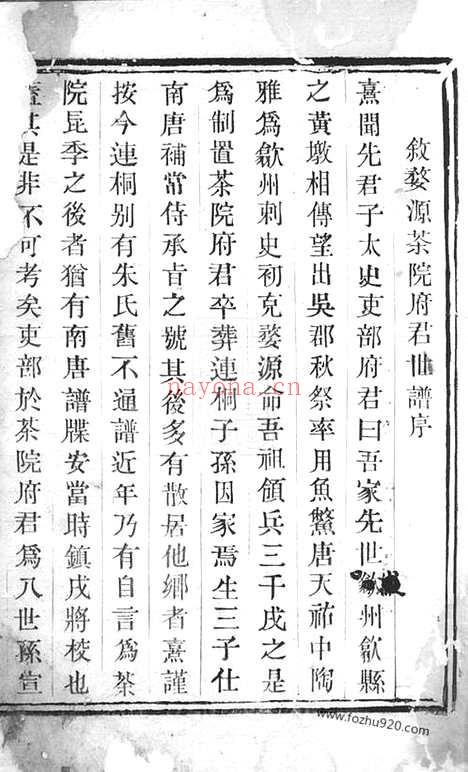 敘婺源茶院府君世譜序
熹聞先君子太史吏部府君曰吾家先世歙州歙縣
之黃墩相傳望出吳郡秋祭率用魚鱉唐天祐中陶
雅為歙州刺史初克婺源命吾祖領兵三千戍之是
為制置茶院府君卒葬連桐子孫因家焉生三子仕
南唐補當侍承旨之號其後多有散居他鄉者熹謹
按今連桐別有朱氏舊不通譜近年乃有自言為茶
院昆季之後者猶有南唐譜牒安當時鎮戍將校也
蓋其是非不可考矣吏部於茶院府君為八世孫宣
nayona.cn
www.fozhu920.com